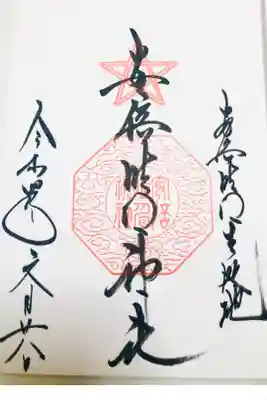 安倍晴明生誕地
安倍晴明神社
令和四年六月廿八日